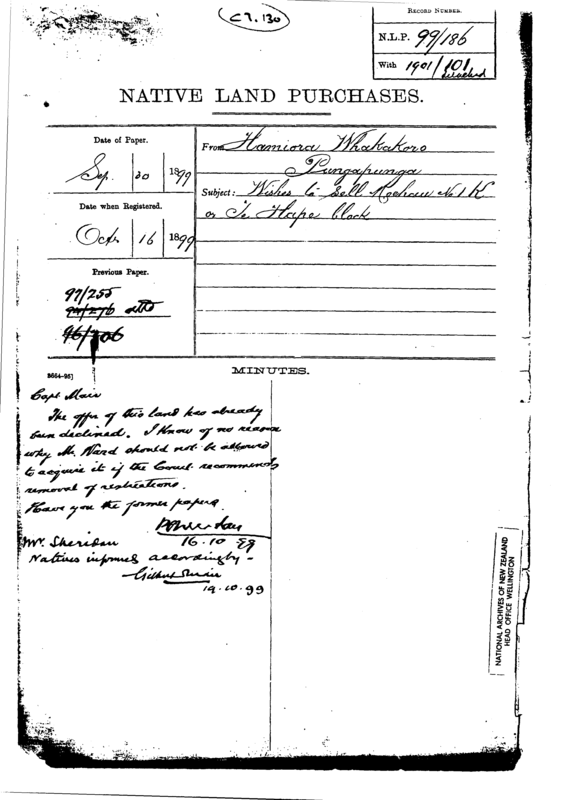 C7.130
RECORD NUMBER.
N.L.P. 99/186
With 1901/101
attached
NATIVE LAND PURCHASES.
Date of Paper.
Sep. 30 1899
Date when Registered.
Octr 16 1899
Previous Paper.
97/255
96/206
From Hamiora Whakakoro
Pungapunga
Subject: Wishes to sell No 1 K
or Te Hape block
B664-95]
MINUTES.
Capt Mair
The offer of this land has already
been declined. I know of no reason
why Mr. Ward should not be allowed
to acquire it if the Court recommends
removal of restrictions.
Have you the former papers
16.10 99
Mr. Sheridan
Natives informed accordingly -
Gilbert Mair
19.10.99
NATIONAL ARCHIVES OF NEW ZEALAND
HEAD OFFICE WELLINGTON